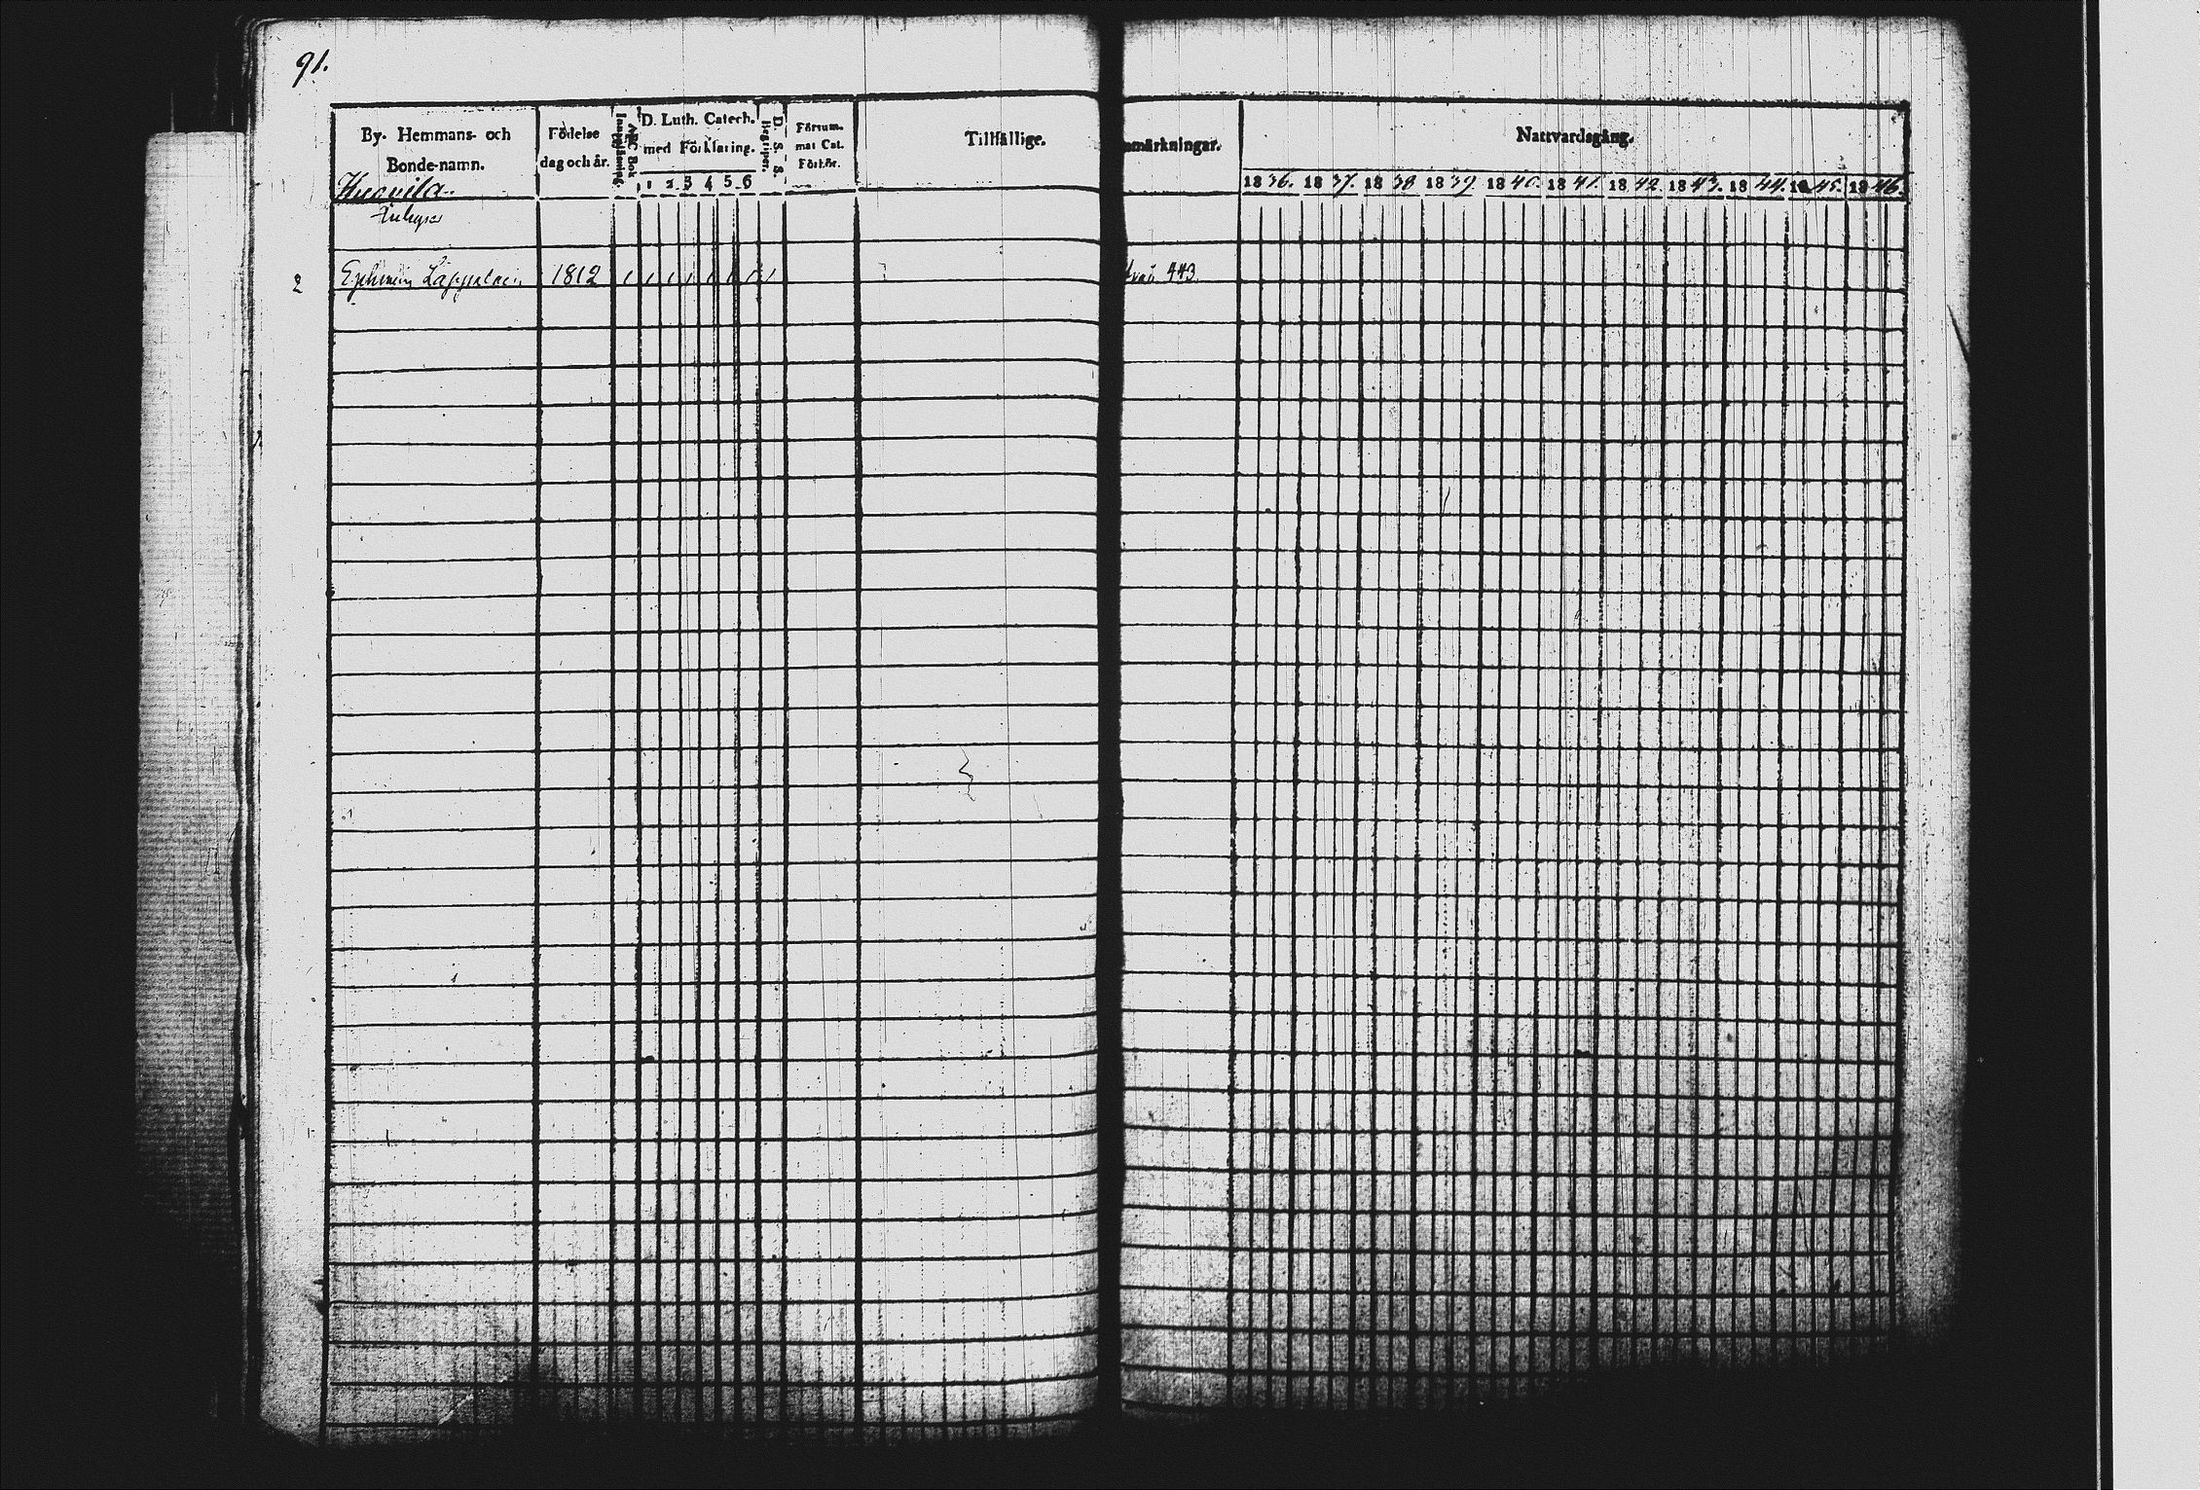 91.
By- Hemmans- och Bonde-namn.
Födelse dag och år.
ABC Bok
D. Luth. Catech. med Förklaring.
1 2 3 4 5 6
D. S. S. Begriper.
Försummat Cat. Förhör.
Tillfällige.
nmärkningar.
Nattvardsgång.
1836. 1837. 1838 1839. 1840. 1841. 1842. 1843. 1844. 1845. 1846.
2 Ephraim 1812 443